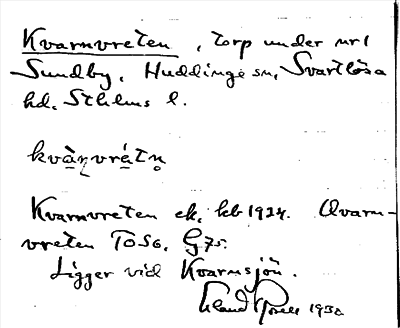 Kvarnvreten, torp under nr 1
Sundby, Huddinge sn, Svartlösa
hd. Sthlms l.
kvà̱ṇvrá̱tn̥
Kvarnvreten ek, kb 1924. Qvarn-
vreten To56. G75.
Ligger vid Kvarnsjön.
1930